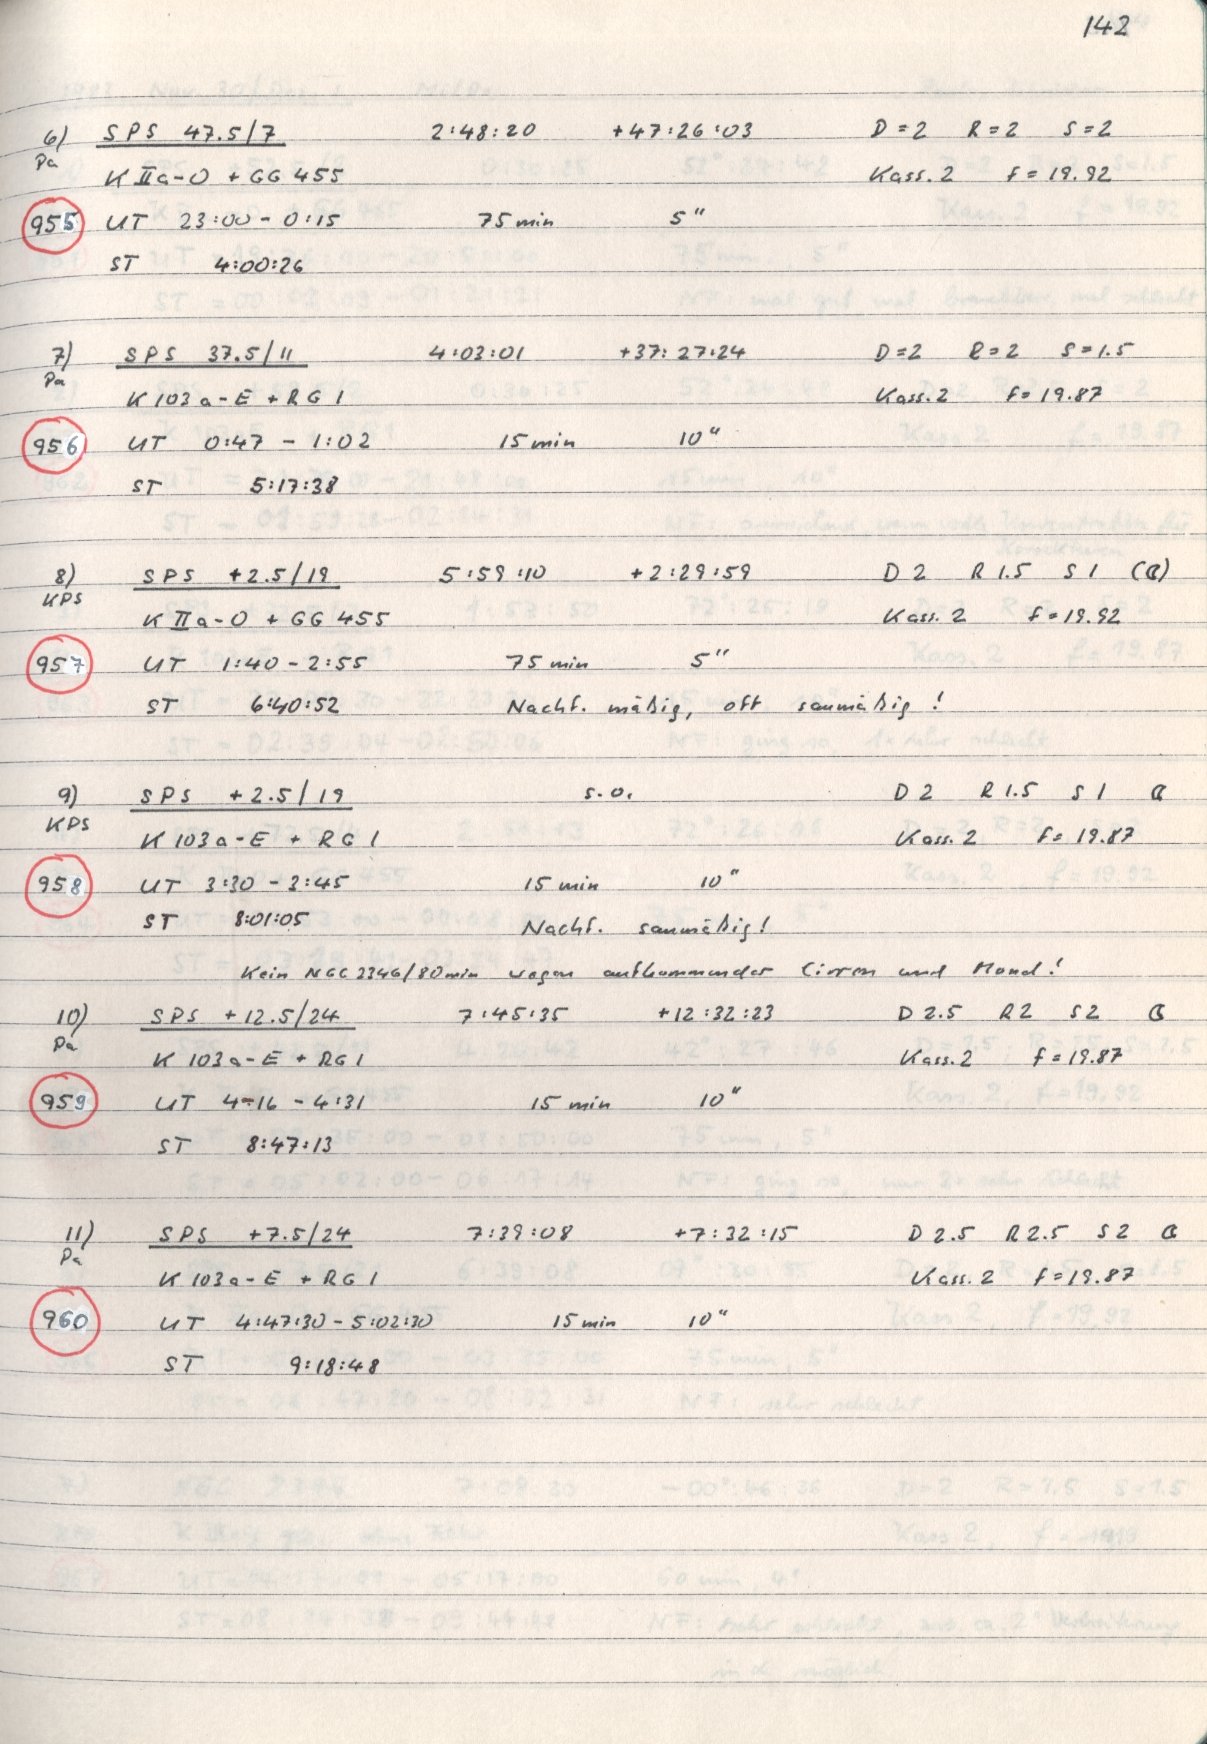 142
6) SPS 47.5/7 2:48:20 +47:26:03 D=2 R=2 S=2
Pa K IIa-O + GG 455 Kass. 2 f = 19.92
955 UT 23:00 - 0:15 75 min 5"
ST 4:00:26
7) SPS 37.5/11 4:03:01 +37:27:24 D=2 R=2 S=1.5
Pa K 103a-E + RG 1 Kass. 2 f = 19.87
956 UT 0:47 - 1:02 15 min 10"
ST 5:17:38
8) SPS +2.5/19 5:59:10 +2:29:59 D 2 R 1.5 S 1 (☾)
KPS K IIa-O + GG 455 Kass. 2 f = 19.92
957 UT 1:40 - 2:55 75 min 5"
ST 6:40:52 Nachf. mäßig, oft saumäßig!
9) SPS +2.5/19 s.o. D 2 R 1.5 S 1 ☾
KPS K 103a-E + RG 1 Kass. 2 f = 19.87
958 UT 3:30 - 3:45 15 min 10"
ST 8:01:05 Nachf. saumäßig!
Kein NGC 2346/80min wegen aufkommender Cirren und Mond!
10) SPS +12.5/24 7:45:35 +12:32:23 D 2.5 R 2 S 2 ☾
Pa K 103a-E + RG 1 Kass. 2 f = 19.87
959 UT 4-16 - 4:31 15 min 10"
ST 8:47:13
11) SPS +7.5/24 7:39:08 +7:32:15 D 2.5 R 2.5 S 2 ☾
Pa K 103a-E + RG 1 Kass. 2 f = 19.87
960 UT 4:47:30 - 5:02:30 15 min 10"
ST 9:18:48